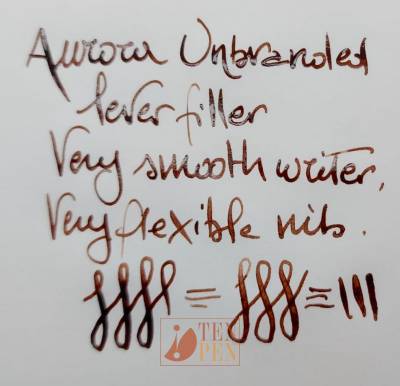 Aurora Unbranded
lever filler
Very smooth writer,
Very flexible nib.
TEN
PEN